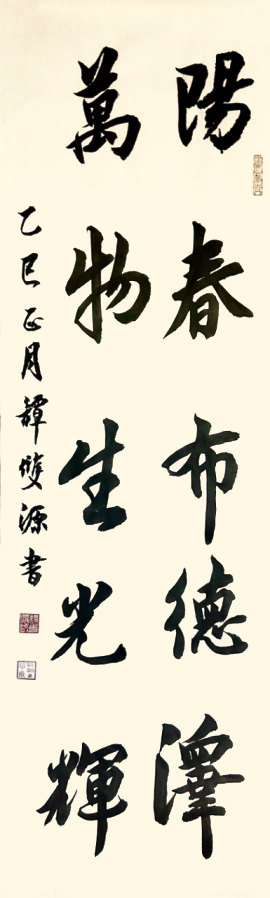 陽春布德澤
萬物生光輝
乙巳正月譚雙源書